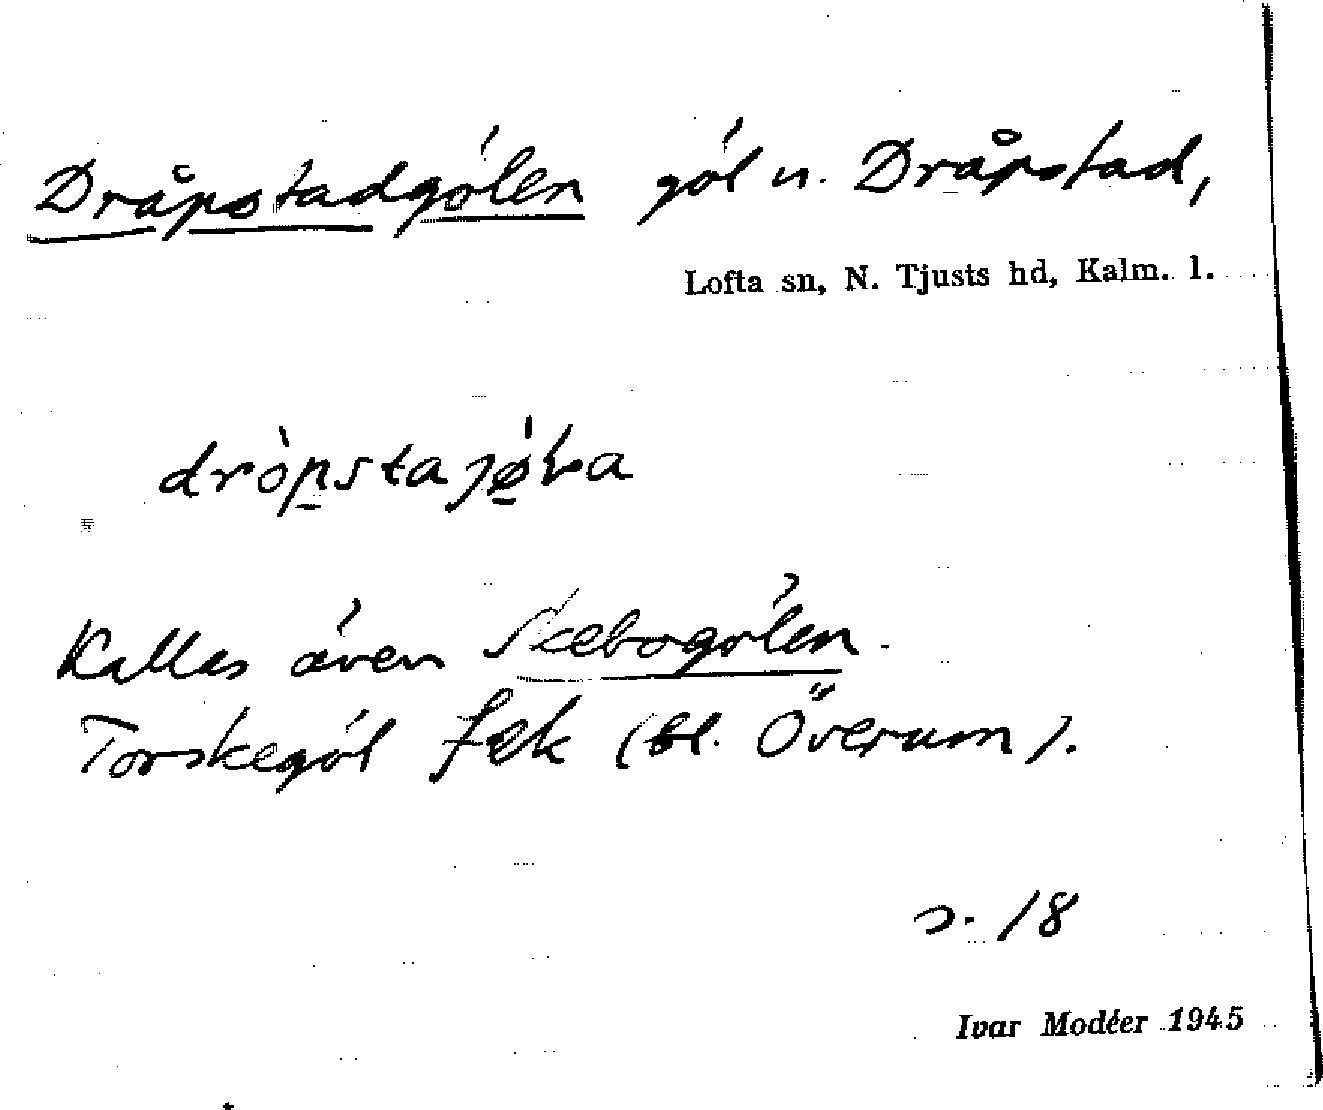 Dråpstadgölen göl n. Dråpstad,
Lofta sn, N. Tjusts hd, Kalm. l.
Kallas även Skebogölen.
Torskegöl Fek (bl. Överum).
s. 18
Ivar Modéer 1945